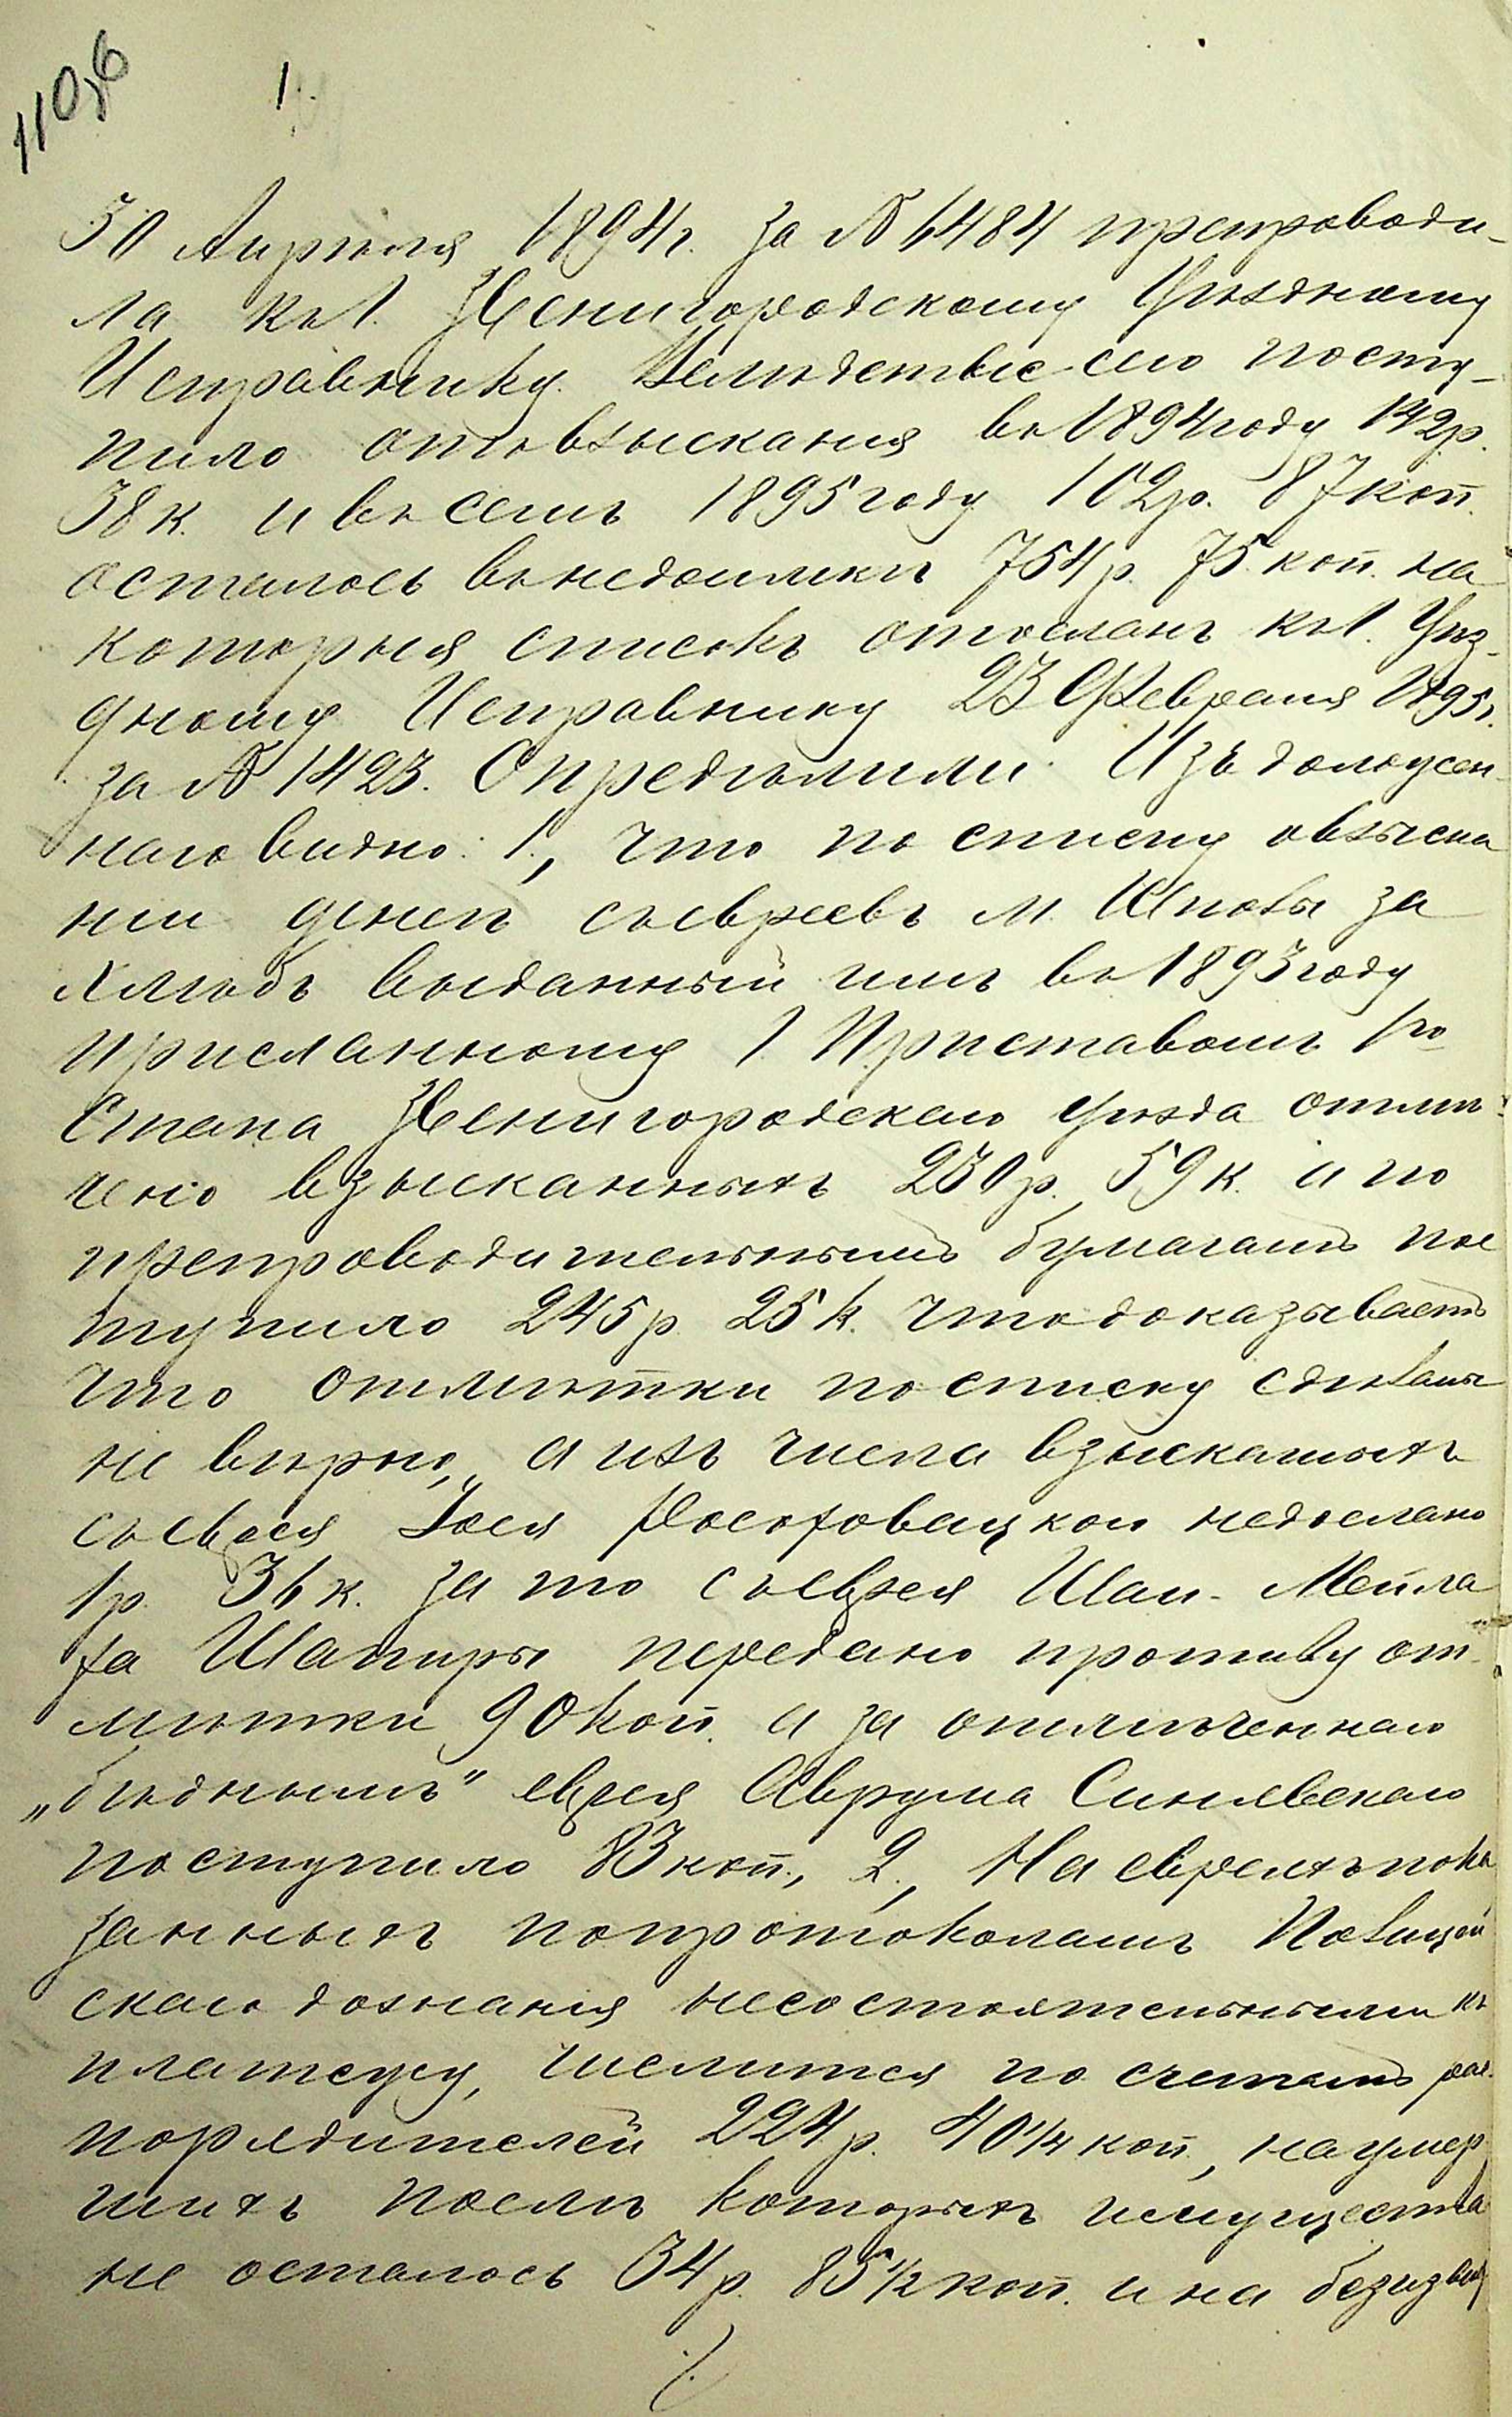 110,б
1.
30 Апрѣля 1894г. за № 6484 препроводи-
ла къ Г. Звенигородскому Уѣздному
Исправнику. Вслѣдствіе сего посту-
пило отъ взысканія въ 1894 году 142р.
38 к. и въ семъ 1895 году 102р. 87 коп.
осталось въ недоимкѣ 754 р. 75 коп. на
которыя списокъ отосланъ къ Г. Уѣз-
дному Исправнику 23 Февраля 1895г.
за № 1423. Опредѣлили: Изъ доложен
наго видно: 1., что по списку о взыска
нии денегъ съ евреевъ м. Шполы за
хлѣбъ выданный имъ въ 1893 году
присланному Г. Приставомъ 1го
Стана Звенигородскаго уѣзда отмѣ-
чено взысканныхъ 230 р. 59 к. а по
препроводительнымъ бумагамъ пос
тупило 245 р. 25 к. что доказываетъ
что отмѣтки по списку сдѣланы
не вѣрно, а изъ числа взысканыхъ
съ еврея Іося Росоховацкого недослано
1р. 36 к. за то съ еврея Шаи-Мейла
ха Шапиры передано противу от-
мѣтки 90 коп. а за отмѣченнаго
„бѣднымъ" еврея Аврума Синявскаго
поступило 83 коп., 2., На евреяхъ пока
занныхъ по протоколамъ Полицей
скаго дознанія несостоятельными къ
платежу, числится по счетамъ рас-
порядителей 224 р. 40 1/4 коп., на умер
шихъ послѣ которыхъ имущества
не осталось 34 р. 85 1/2 коп. и на безизвѣ